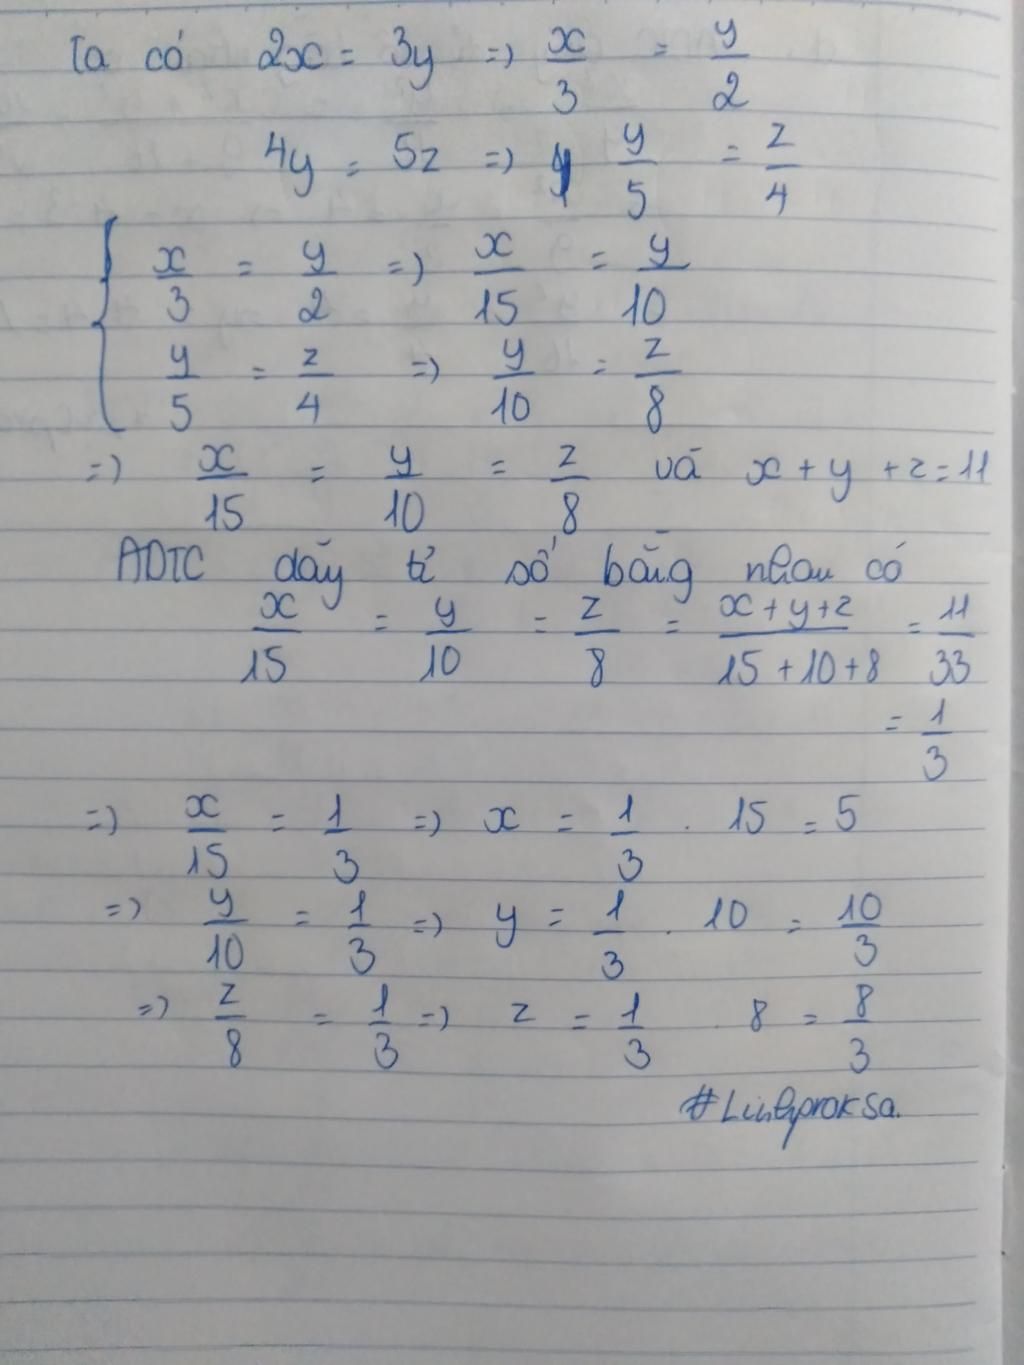 Ta có 2x = 3y => x/3 = y/2
4y = 5z => y/5 = z/4
{ x/3 = y/2 => x/15 = y/10
y/5 = z/4 => y/10 = z/8
=> x/15 = y/10 = z/8 và x + y + z = 11
ADTC dãy tỉ số bằng nhau có
x/15 = y/10 = z/8 = x + y + z/15 + 10 + 8 = 11/33
= 1/3
=> x/15 = 1/3 => x = 1/3 . 15 = 5
=> y/10 = 1/3 => y = 1/3 . 10 = 10/3
=> z/8 = 1/3 => z = 1/3 . 8 = 8/3